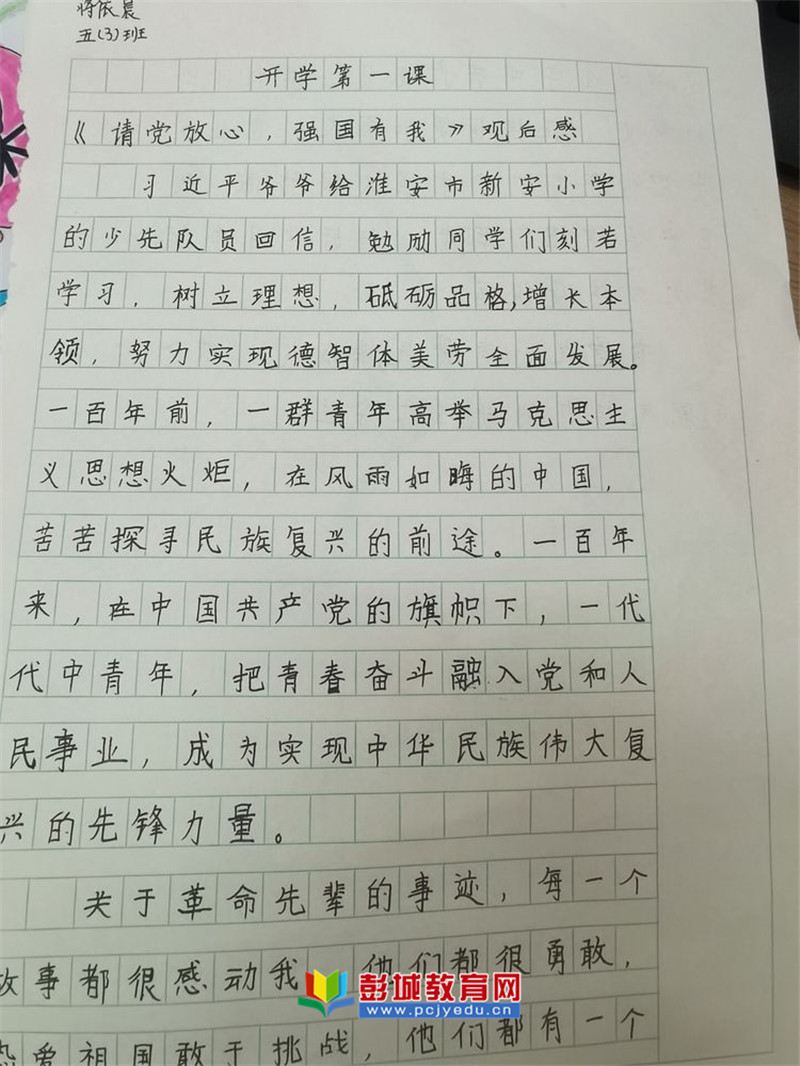 蒋依晨
五(3)班
开学第一课
《请党放心，强国有我》观后感
习近平爷爷给淮安市新安小学
的少先队员回信，勉励同学们刻若
学习，树立理想，砥砺品格，增长本
领，努力实现德智体美劳全面发展。
一百年前，一群青年高举马克思主
义思想火炬，在风雨如晦的中国，
苦苦探寻民族复兴的前途。一百年
来，在中国共产党的旗帜下，一代
代中青年，把青春奋斗融入党和人
民事业，成为实现中华民族伟大复
兴的先锋力量。
关于革命先辈的事迹，每一个
故事都很感动我 他们都很勇敢，
热爱祖国敢于挑战，他们都有一个
彭城教育网
www.pcjyedu.cn